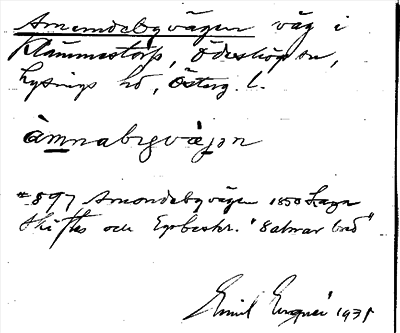 Amemdebyvägen väg i
Klämmestorp, Ödeshög sn,
Lysings hd, Österg. l.
àmnabygvæjən
#897 Amondebyvägen 1850 Laga
Skiftes och Egobeskr. "8 alnar bred"
Emil 1935